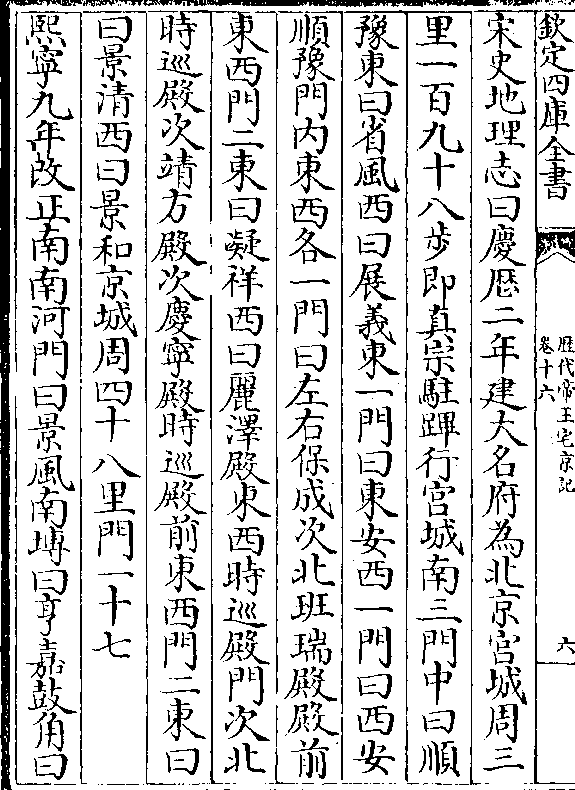 欽定四庫全書
歴代帝王宅京記
卷十六
六
宋史地理志曰慶厯二年建大名府為北京宮城周三
里一百九十八歩即真宗駐蹕行宮城南三門中曰順
豫東曰省風西曰展義東一門曰東安西一門曰西安
順豫門内東西各一門曰左右保成次北班瑞殿殿前
東西門二東曰凝祥西曰麗澤殿東西時巡殿門次北
時巡殿次靖方殿次慶寧殿時巡殿前東西門二東曰
曰景清西曰景和京城周四十八里門一十七
熙寧九年改正南南河門曰景風南塼曰亨嘉鼓角曰